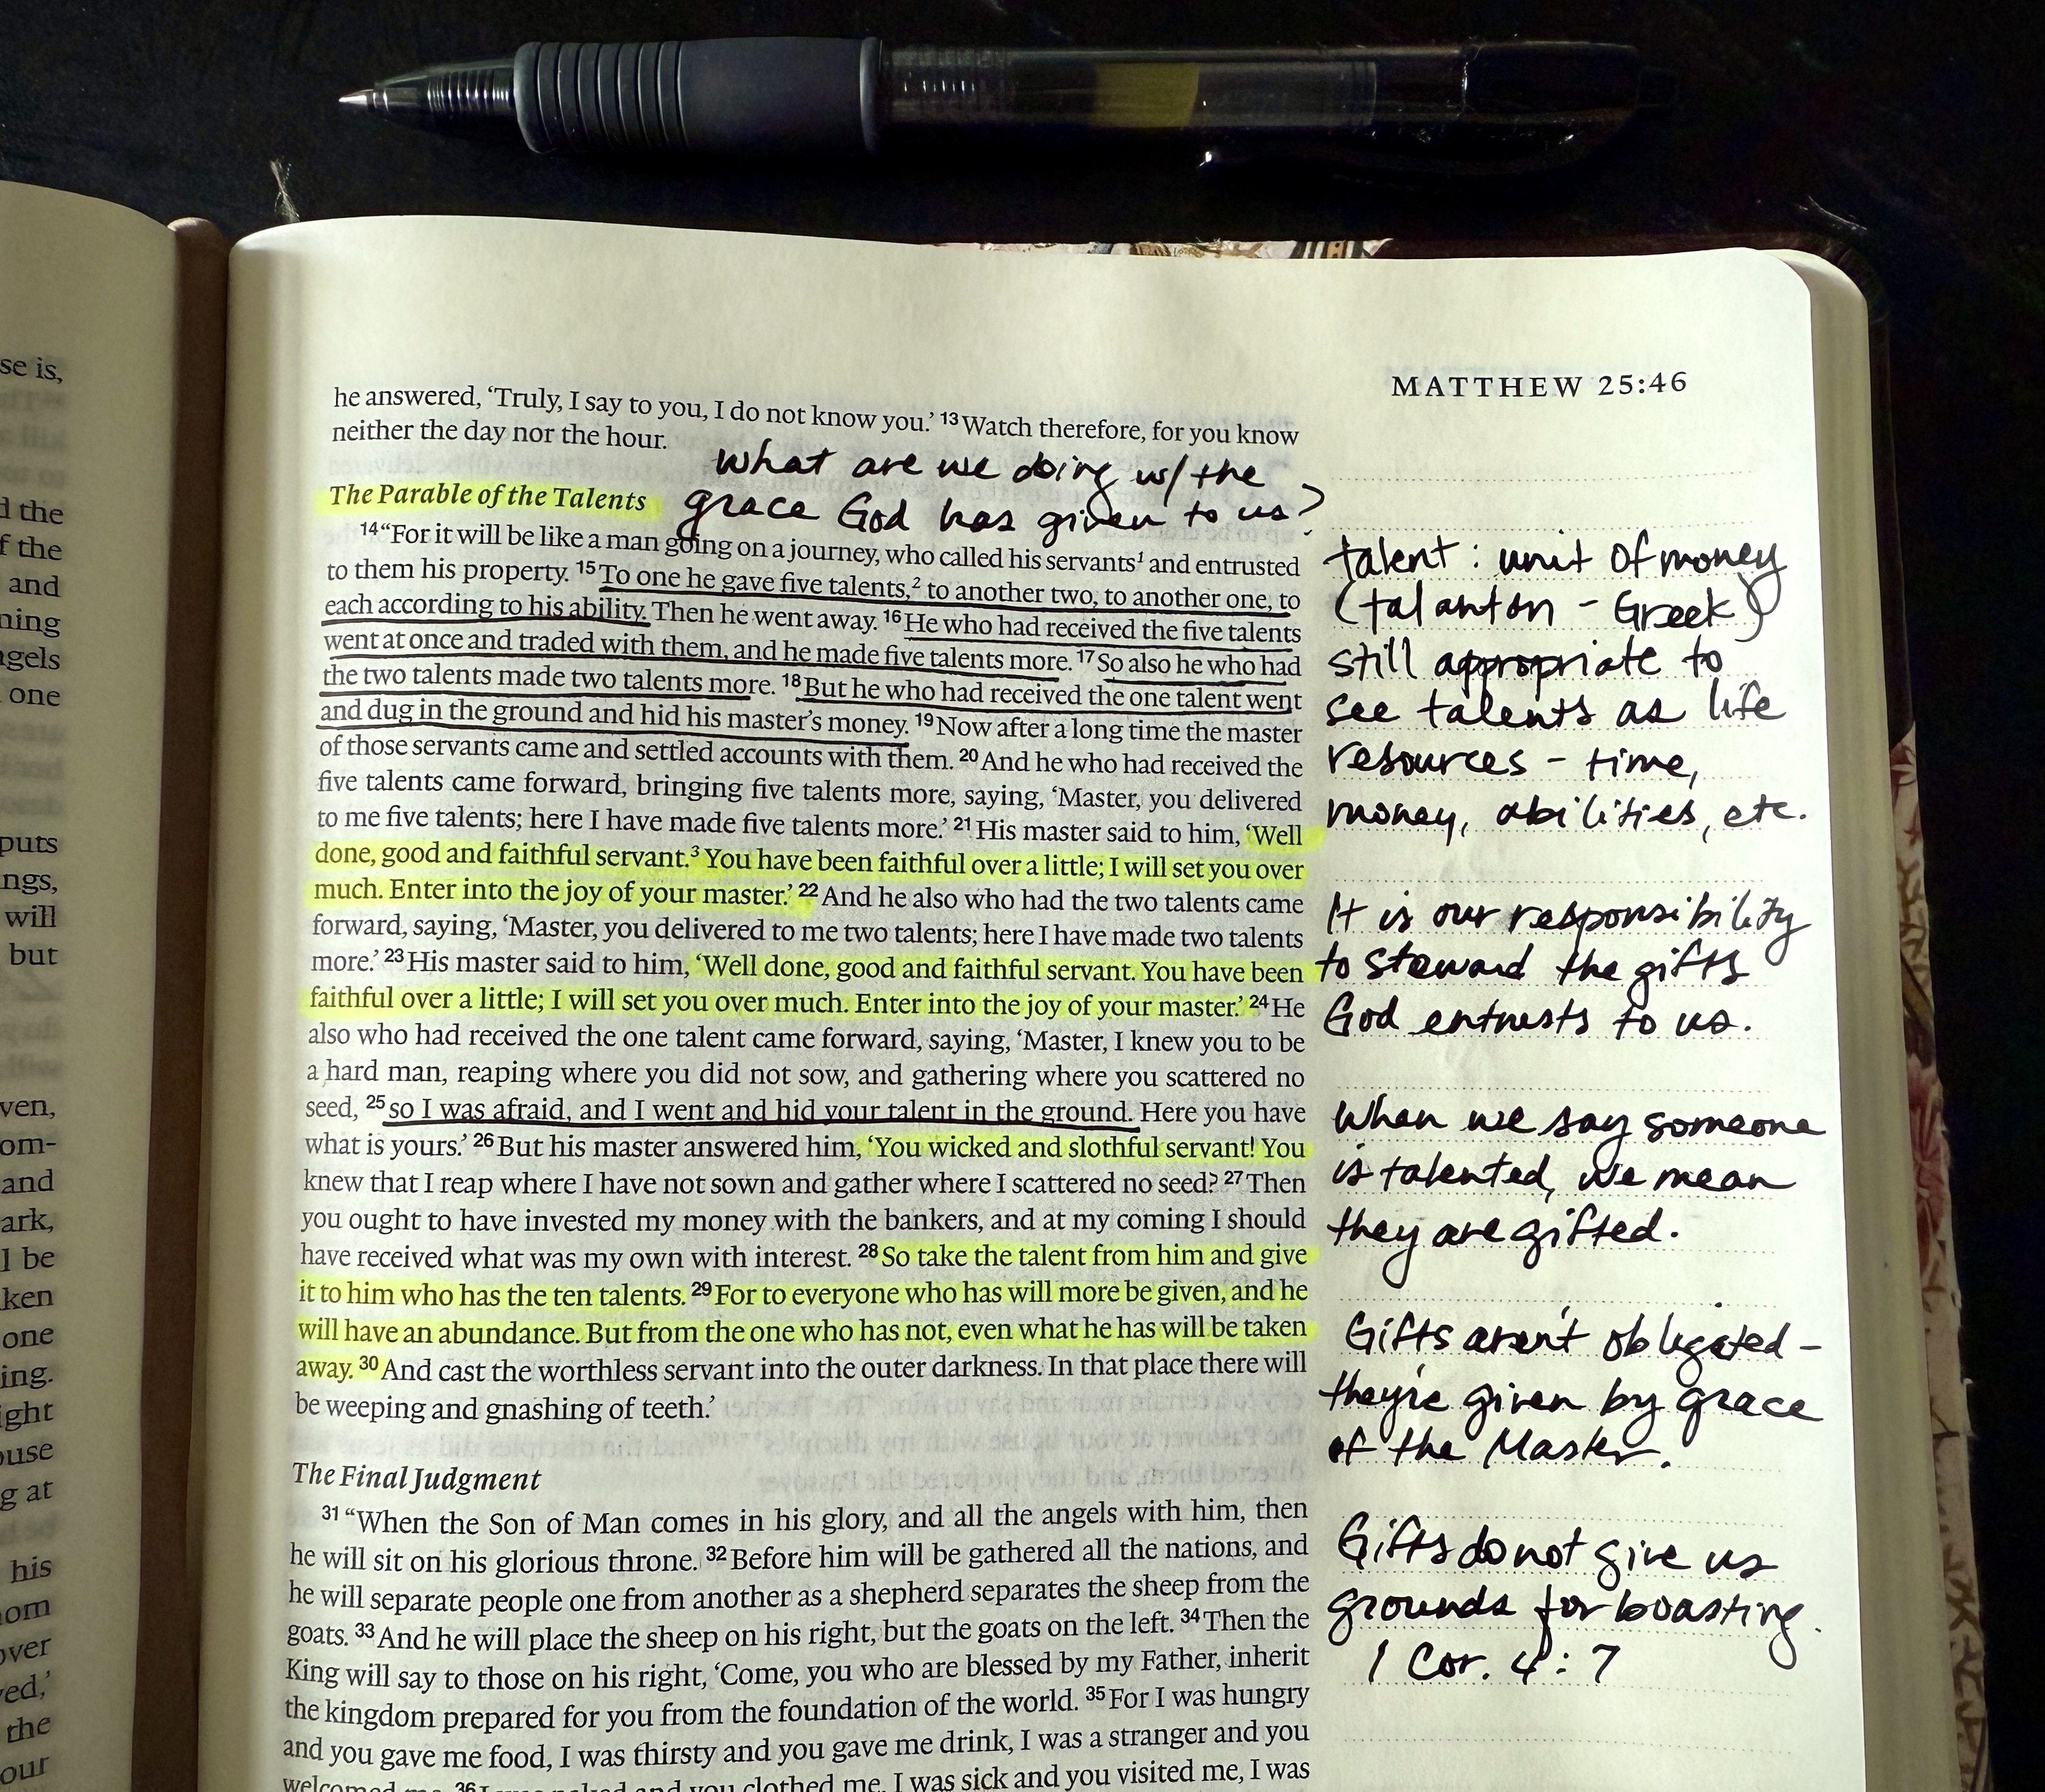 se is,
d the
f the
and
ning
ngels
one
puts
ngs,
will
but
ven,
om-
and
ark,
l be
ken
one
ing.
ight
ouse
g at
his
hom
over
ved,'
the
our
MATTHEW 25:46
he answered, ‘Truly, I say to you, I do not know you.’ 13 Watch therefore, for you know
neither the day nor the hour.
what are we doing w/ the
grace God has given to us?
The Parable of the Talents
14 “For it will be like a man going on a journey, who called his servants1 and entrusted
to them his property. 15 To one he gave five talents,2 to another two, to another one, to
each according to his ability. Then he went away. 16 He who had received the five talents
went at once and traded with them, and he made five talents more. 17 So also he who had
the two talents made two talents more. 18 But he who had received the one talent went
and dug in the ground and hid his master’s money. 19 Now after a long time the master
of those servants came and settled accounts with them. 20 And he who had received the
five talents came forward, bringing five talents more, saying, ‘Master, you delivered
to me five talents; here I have made five talents more.’ 21 His master said to him, ‘Well
done, good and faithful servant.3 You have been faithful over a little; I will set you over
much. Enter into the joy of your master.’ 22 And he also who had the two talents came
forward, saying, ‘Master, you delivered to me two talents; here I have made two talents
more.’ 23 His master said to him, ‘Well done, good and faithful servant. You have been
faithful over a little; I will set you over much. Enter into the joy of your master.’ 24 He
also who had received the one talent came forward, saying, ‘Master, I knew you to be
a hard man, reaping where you did not sow, and gathering where you scattered no
seed, 25 so I was afraid, and I went and hid your talent in the ground. Here you have
what is yours.’ 26 But his master answered him, ‘You wicked and slothful servant! You
knew that I reap where I have not sown and gather where I scattered no seed? 27 Then
you ought to have invested my money with the bankers, and at my coming I should
have received what was my own with interest. 28 So take the talent from him and give
it to him who has the ten talents. 29 For to everyone who has will more be given, and he
will have an abundance. But from the one who has not, even what he has will be taken
away. 30 And cast the worthless servant into the outer darkness. In that place there will
be weeping and gnashing of teeth.’
The Final Judgment
31 “When the Son of Man comes in his glory, and all the angels with him, then
he will sit on his glorious throne. 32 Before him will be gathered all the nations, and
he will separate people one from another as a shepherd separates the sheep from the
goats. 33 And he will place the sheep on his right, but the goats on the left. 34 Then the
King will say to those on his right, ‘Come, you who are blessed by my Father, inherit
the kingdom prepared for you from the foundation of the world. 35 For I was hungry
and you gave me food, I was thirsty and you gave me drink, I was a stranger and you
welcomed me, 36 and you clothed me, I was sick and you visited me, I was
talent: unit of money
(talanton - Greek)
still appropriate to
see talents as life
resources - time,
money, abilities, etc.
It is our responsibility
to steward the gifts
God entrusts to us.
When we say someone
is talented, we mean
they are gifted.
Gifts aren't obligated -
they're given by grace
of the Master.
Gifts do not give us
grounds for boasting.
1 Cor. 4:7